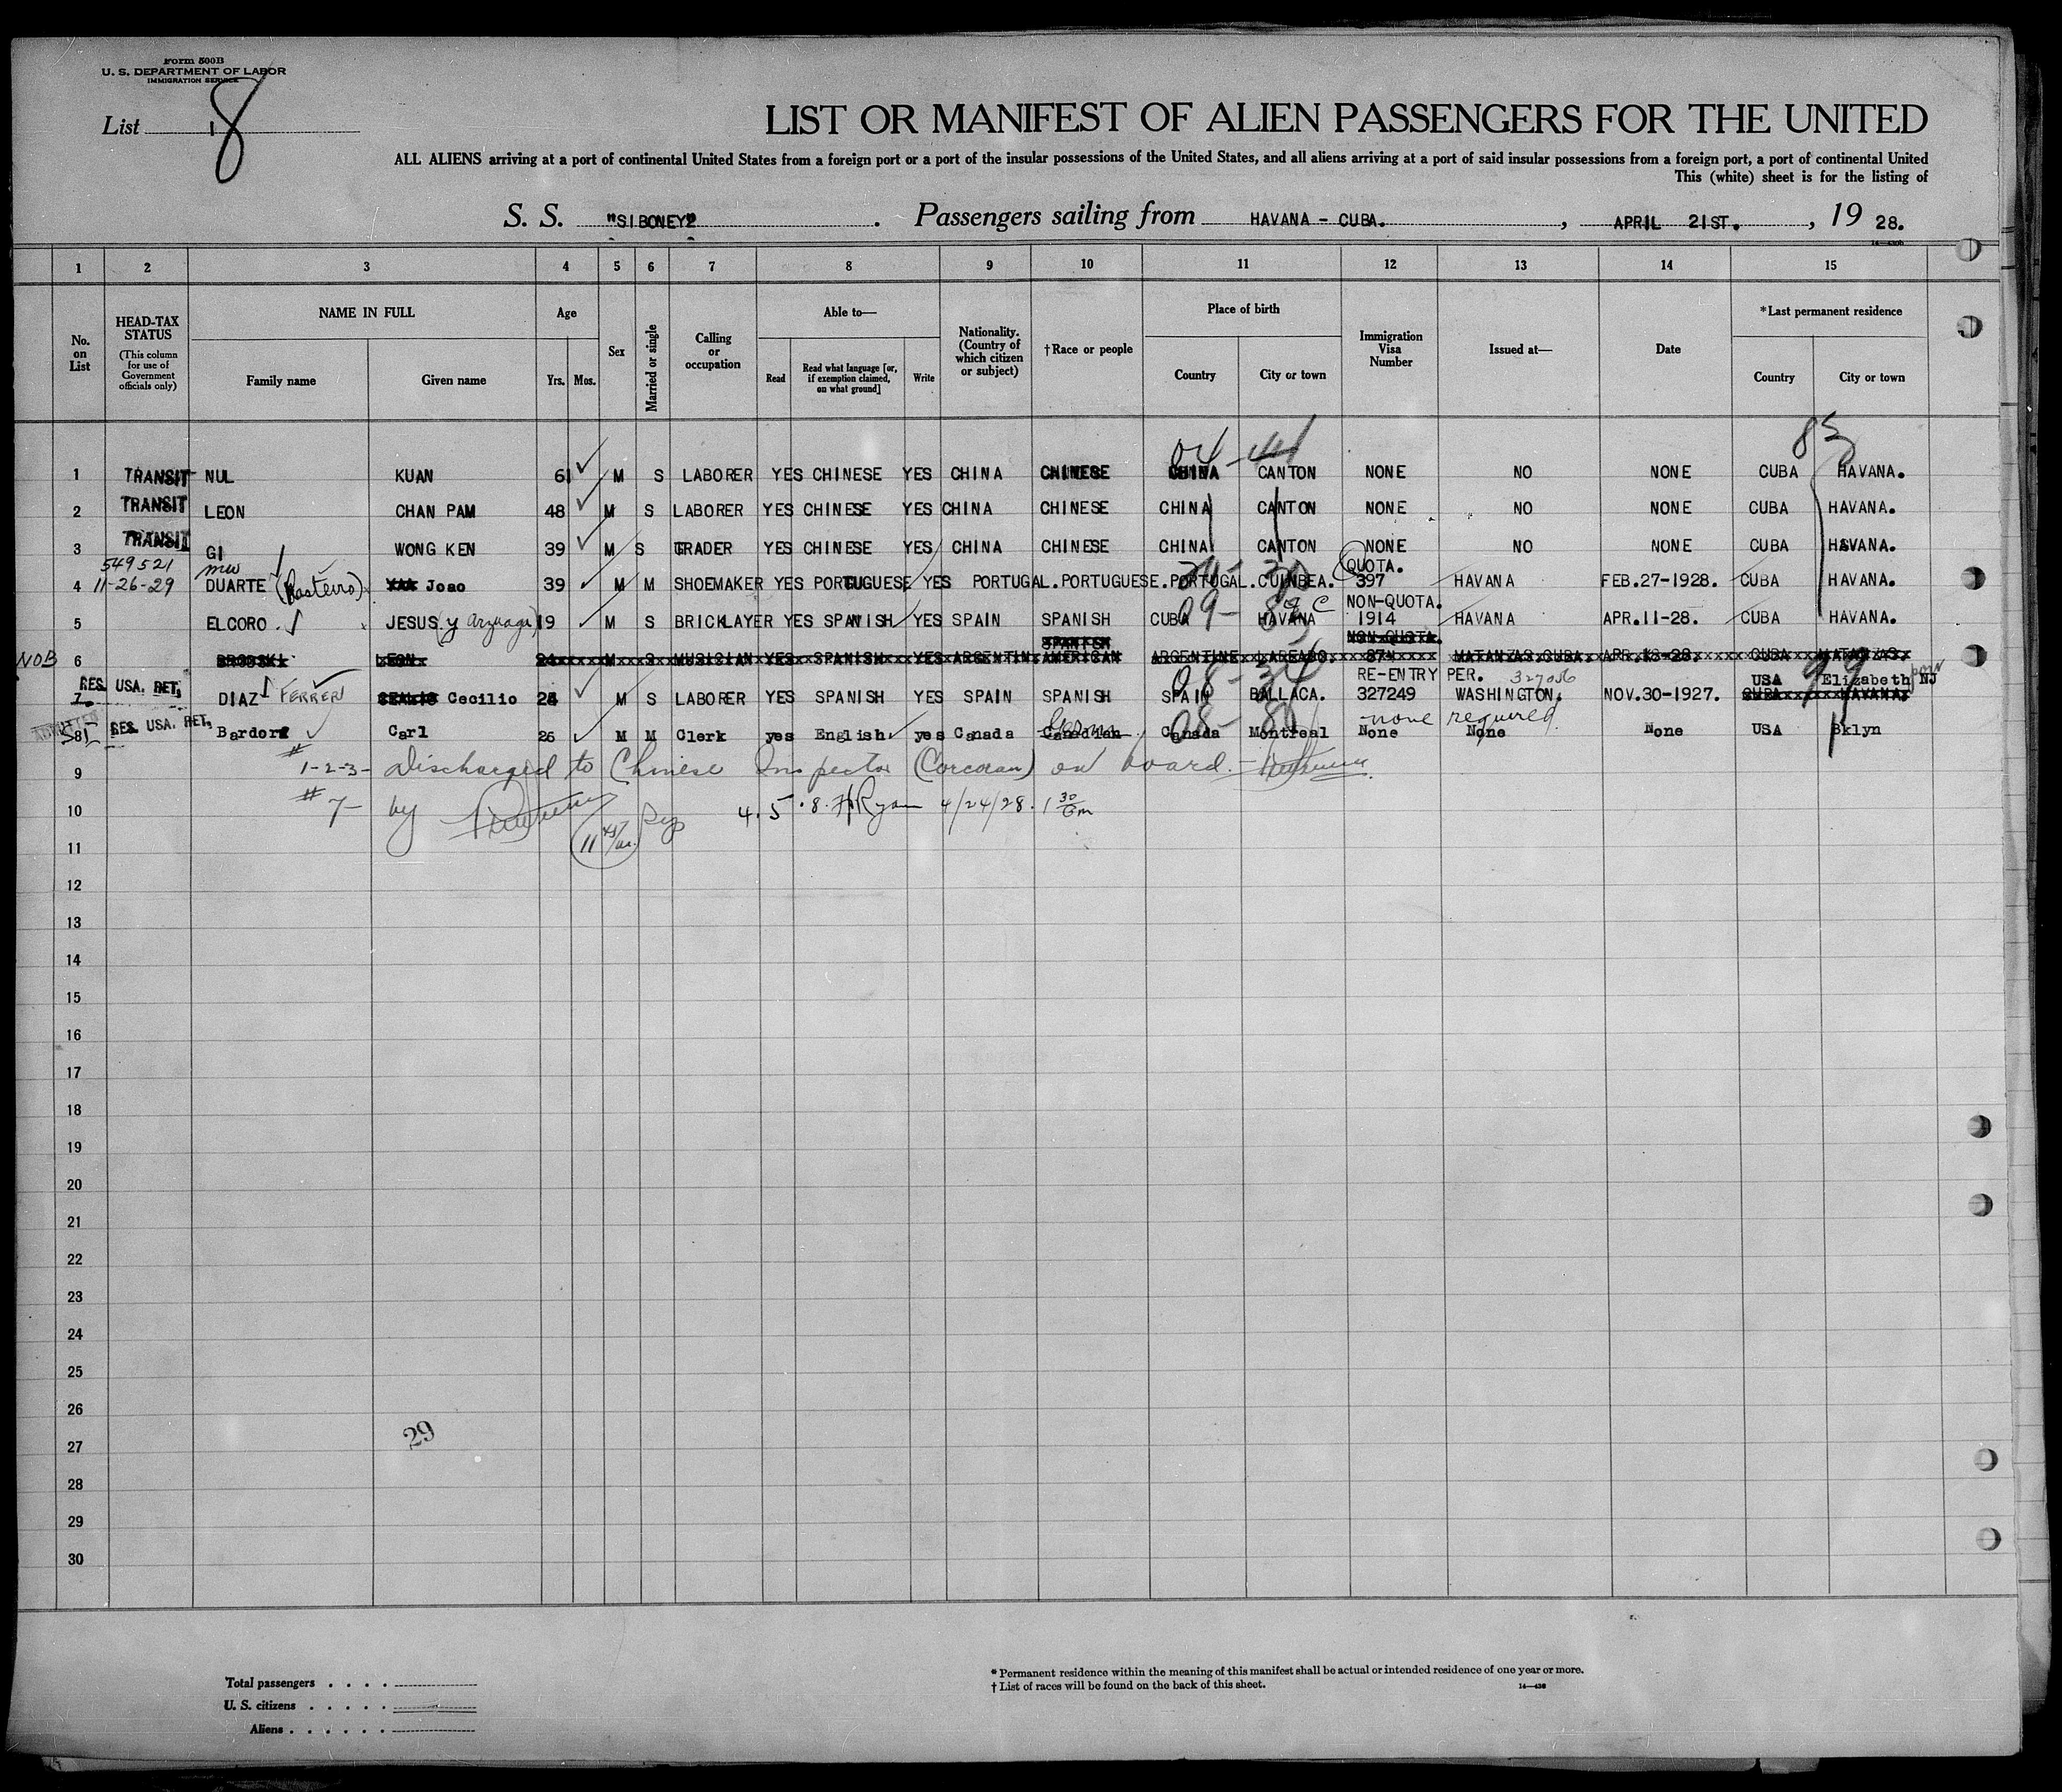 Form 500B
U. S. DEPARTMENT OF LABOR
IMMIGRATION SERVICE
List 8
LIST OR MANIFEST OF ALIEN PASSENGERS FOR THE UNITED
ALL ALIENS arriving at a port of continental United States from a foreign port or a port of the insular possessions of the United States, and all aliens arriving at a port of said insular possessions from a foreign port, a port of continental United
This (white) sheet is for the listing of
S. S. "SIBONEY" . Passengers sailing from HAVANA - CUBA. , APRIL 21ST. , 19 28.
1 2 3 4 5 6 7 8 9 10 11 12 13 14 15
No. on List
HEAD-TAX STATUS (This column for use of Government officials only)
NAME IN FULL
Family name Given name
Age
Yrs. Mos.
Sex
Married or single
Calling or occupation
Able to—
Read Read what language [or, if exemption claimed, on what ground] Write
Nationality. (Country of which citizen or subject)
†Race or people
Place of birth
Country City or town
Immigration Visa Number
Issued at—
Date
*Last permanent residence
Country City or town
04 85
1 TRANSIT NUL KUAN 61 M S LABORER YES CHINESE YES CHINA CHINESE CHINA CANTON NONE NO NONE CUBA HAVANA.
2 TRANSIT LEON CHAN PAM 48 M S LABORER YES CHINESE YES CHINA CHINESE CHINA CANTON NONE NO NONE CUBA HAVANA.
3 TRANSIT GI WONG KEN 39 M S TRADER YES CHINESE YES CHINA CHINESE CHINA CANTON NONE NO NONE CUBA HAVANA.
549521 mw QUOTA.
4 11-26-29 DUARTE (Rasteiro) Joao 39 M M SHOEMAKER YES PORTUGUESE YES PORTUGAL. PORTUGUESE. PORTUGAL. CUINBEA. 397 HAVANA FEB.27-1928. CUBA HAVANA.
09- 89 C NON-QUOTA.
5 ELCORO JESUS (y Arzuaga) 19 M S BRICKLAYER YES SPANISH YES SPAIN SPANISH CUBA HAVANA 1914 HAVANA APR.11-28. CUBA HAVANA.
SPANISH NON-QUOTA.
NOB 6 BRODSKI LEON 24 M S MUSICIAN YES SPANISH YES ARGENTIN AMERICAN ARGENTINE 874 MATANZAS.CUBA APR.18-28. CUBA MATANZAS.
RES. USA. RET. 08-34 RE-ENTRY PER. 327056 USA Elizabeth NJ
7 DIAZ FERRER Cecilio M S LABORER YES SPANISH YES SPAIN SPANISH SPAIN BALLACA. 327249 WASHINGTON. NOV.30-1927. CUBA HAVANA
RES. USA. RET. 08- none required
8 Bardorf Carl 26 M M Clerk yes English yes Canada Canadian Canada Montreal None None None USA Bklyn
9 # 1-2-3- Discharged to Chinese Inspector (Corcoran) on board.
10 # 7- by 4. 5. 8. Ryan 4/24/28. 1 30
11
12
13
14
15
16
17
18
19
20
21
22
23
24
25
26
29
27
28
29
30
Total passengers . . . .
U. S. citizens . . . . .
Aliens . . . . . .
* Permanent residence within the meaning of this manifest shall be actual or intended residence of one year or more.
† List of races will be found on the back of this sheet.